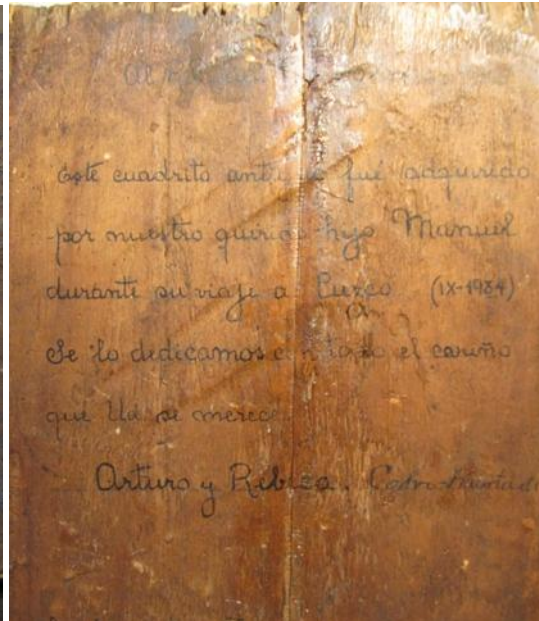 Este cuadrito fué adquirido
por nuestro querido hijo Manuel
durante su viaje a Cuzco (IX-1984)
Se lo dedicamos con todo el cariño
que Ud se merece
Arturo y Rebeca.